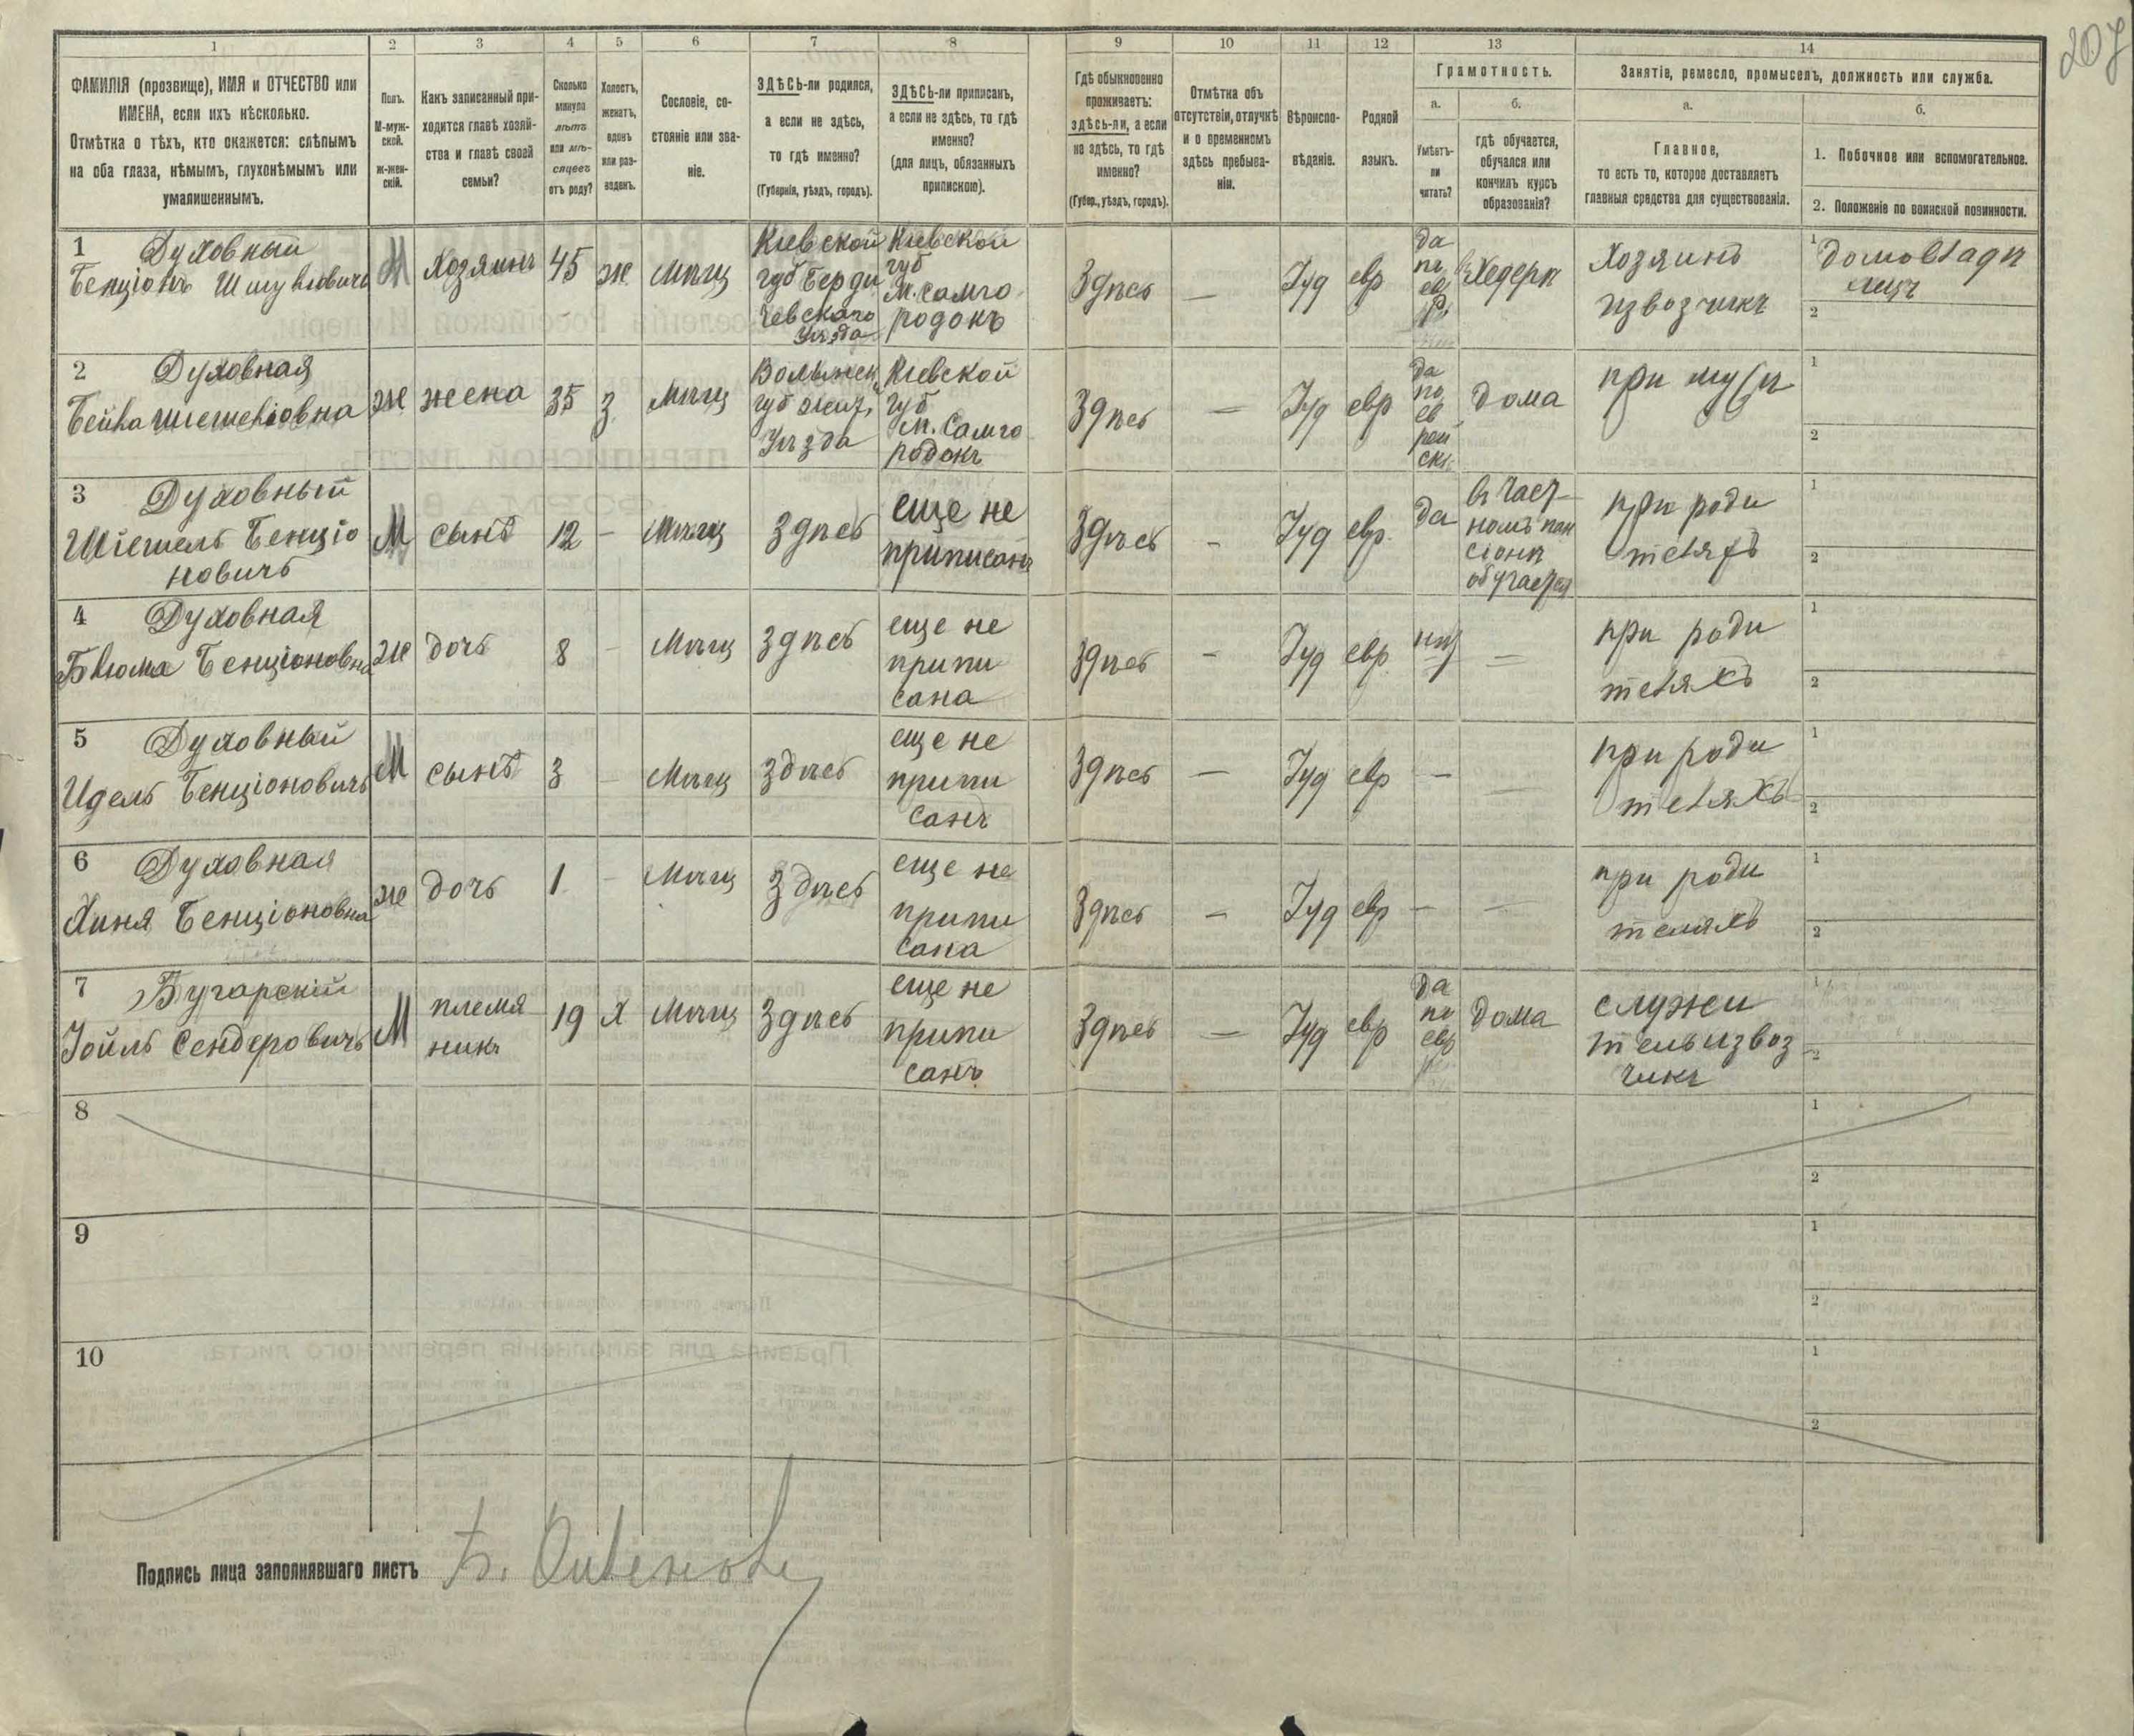 207
1 2 3 4 5 6 7 8 9 10 11 12 13 14
ФАМИЛІЯ (прозвище), ИМЯ и ОТЧЕСТВО или
ИМЕНА, если ихъ нѣсколько.
Отмѣтка о тѣхъ, кто окажется: слѣпымъ
на оба глаза, нѣмымъ, глухонѣмымъ или
умалишеннымъ.
Полъ.
М-муж-
ской.
ж-жен-
скій.
Какъ записанный при-
ходится главѣ хозяй-
ства и главѣ своей
семьи?
Сколько
минуло
лѣтъ
или мѣ-
сяцевъ
отъ роду?
Холостъ,
женатъ,
вдовъ
или раз-
веденъ.
Сословіе, со-
стояніе или зва-
ніе.
ЗДѢСЬ-ли родился,
а если не здѣсь,
то гдѣ именно?
(Губернія, уѣздъ, городъ).
ЗДѢСЬ-ли приписанъ,
а если не здѣсь, то гдѣ
именно?
(для лицъ, обязанныхъ
припискою).
Гдѣ обыкновенно
проживаетъ:
здѣсь-ли, а если
не здѣсь, то гдѣ
именно?
(Губер., уѣздъ, городъ).
Отмѣтка объ
отсутствіи, отлучкѣ
и о временномъ
здѣсь пребыва-
ніи.
Вѣроиспо-
вѣданіе.
Родной
языкъ.
Грамотность.
а.
Умѣетъ-
ли
читать?
б.
гдѣ обучается,
обучался или
кончилъ курсъ
образованія?
Занятіе, ремесло, промыселъ, должность или служба.
а.
Главное,
то есть то, которое доставляетъ
главныя средства для существованія.
б.
1. Побочное или вспомогательное.
2. Положеніе по воинской повинности.
1 Духовный
Бенціонъ Шмулювичъ
М
Хозяинъ
45
ж
Мѣщ
Кіевской
губ Берди
чевскаго
Уѣзда
Кіевской
губ
М. Самго
родокъ
Здѣсь
—
Іуд
евр
да
по
ев
р.
въ Хедерѣ
Хозяинъ
извозчикъ
1 домовладѣ
лецъ
2
2 Духовная
Бейла Шмемеліовна
ж
жена
35
з
Мѣщ
Волынск
губ Жит.
Уѣзда
Кіевской
губ
М. Самго
родокъ
Здѣсь
—
Іуд
евр
да
по
ев
рей
ски
дома
при мужѣ
1
2
3 Духовный
Шіемель Бенціо
новичъ
М
сынъ
12
-
Мѣщ
Здѣсь
еще не
приписанъ
Здѣсь
-
Іуд
евр.
да
въ част-
номъ пан
сіонѣ
обучается
при роди
теляхъ
1
2
4 Духовная
Блюма Бенціоновна
ж
дочь
8
-
Мѣщ
здѣсь
еще не
припи
сана
здѣсь
-
Іуд
евр.
нѣт
—
при роди
теляхъ
1
2
5 Духовный
Идель Бенціоновичъ
М
сынъ
3
-
Мѣщ
здѣсь
еще не
припи
санъ
здѣсь
—
Іуд
евр
-
—
при роди
теляхъ
1
2
6 Духовная
Хиня Бенціоновна
ж
дочь
1
-
Мѣщ
здѣсь
еще не
припи
сана
здѣсь
-
Іуд
евр
-
—
при роди
теляхъ
1
2
7 Бугарскій
Іойль Сендеровичъ
М
племя
никъ
19
х
Мѣщ
Здѣсь
еще не
припи
санъ
Здѣсь
—
Іуд
евр
да
по
евр
дома
служи
тель извоз
чикъ
1
2
8
1
2
9
1
2
10
1
2
Подпись лица заполнявшаго листъ